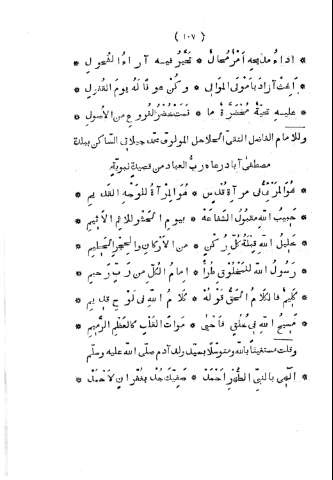 ( ١٠٧ )
* اداء مديحه امر محال * تحير فيه آراء الفحول *
* اغث آزاد يا مولى الموالى * وكن عونا له يوم القفول *
* عليه تحية مخضرة ما * نمت خضر الفروع من الأصول *
وللامام الفاضل التقى الحلاحل المولوى محمد جيلانى الساكن ببلدة
مصطفى آباد رعاه رب العباد من قصيدة نبوية
* هو المرئى مرآة قدس * هو المرآة للوجه القديم *
* حبيب الله مقبول الشفاعه * بيوم الحشر للامم الأثيم *
* خليل الله قبلة كل ركن * من الأركان والحجر الحطيم *
* رسول الله للمخلوق طرا * امام الكل من رب رحيم *
* كليم فالكلام الحق قوله * كلام الله فى لوح قديم *
* مسيح الله فى خلق فاحيى * موات القلب كالعظم الرميم *
وقلت مستغيثا بالله ومتوسلا بسيد ولد آدم صلى الله عليه وسلم
* الهى بالنبى الطهر احمد * صفيك جد بغفران لاحمد *